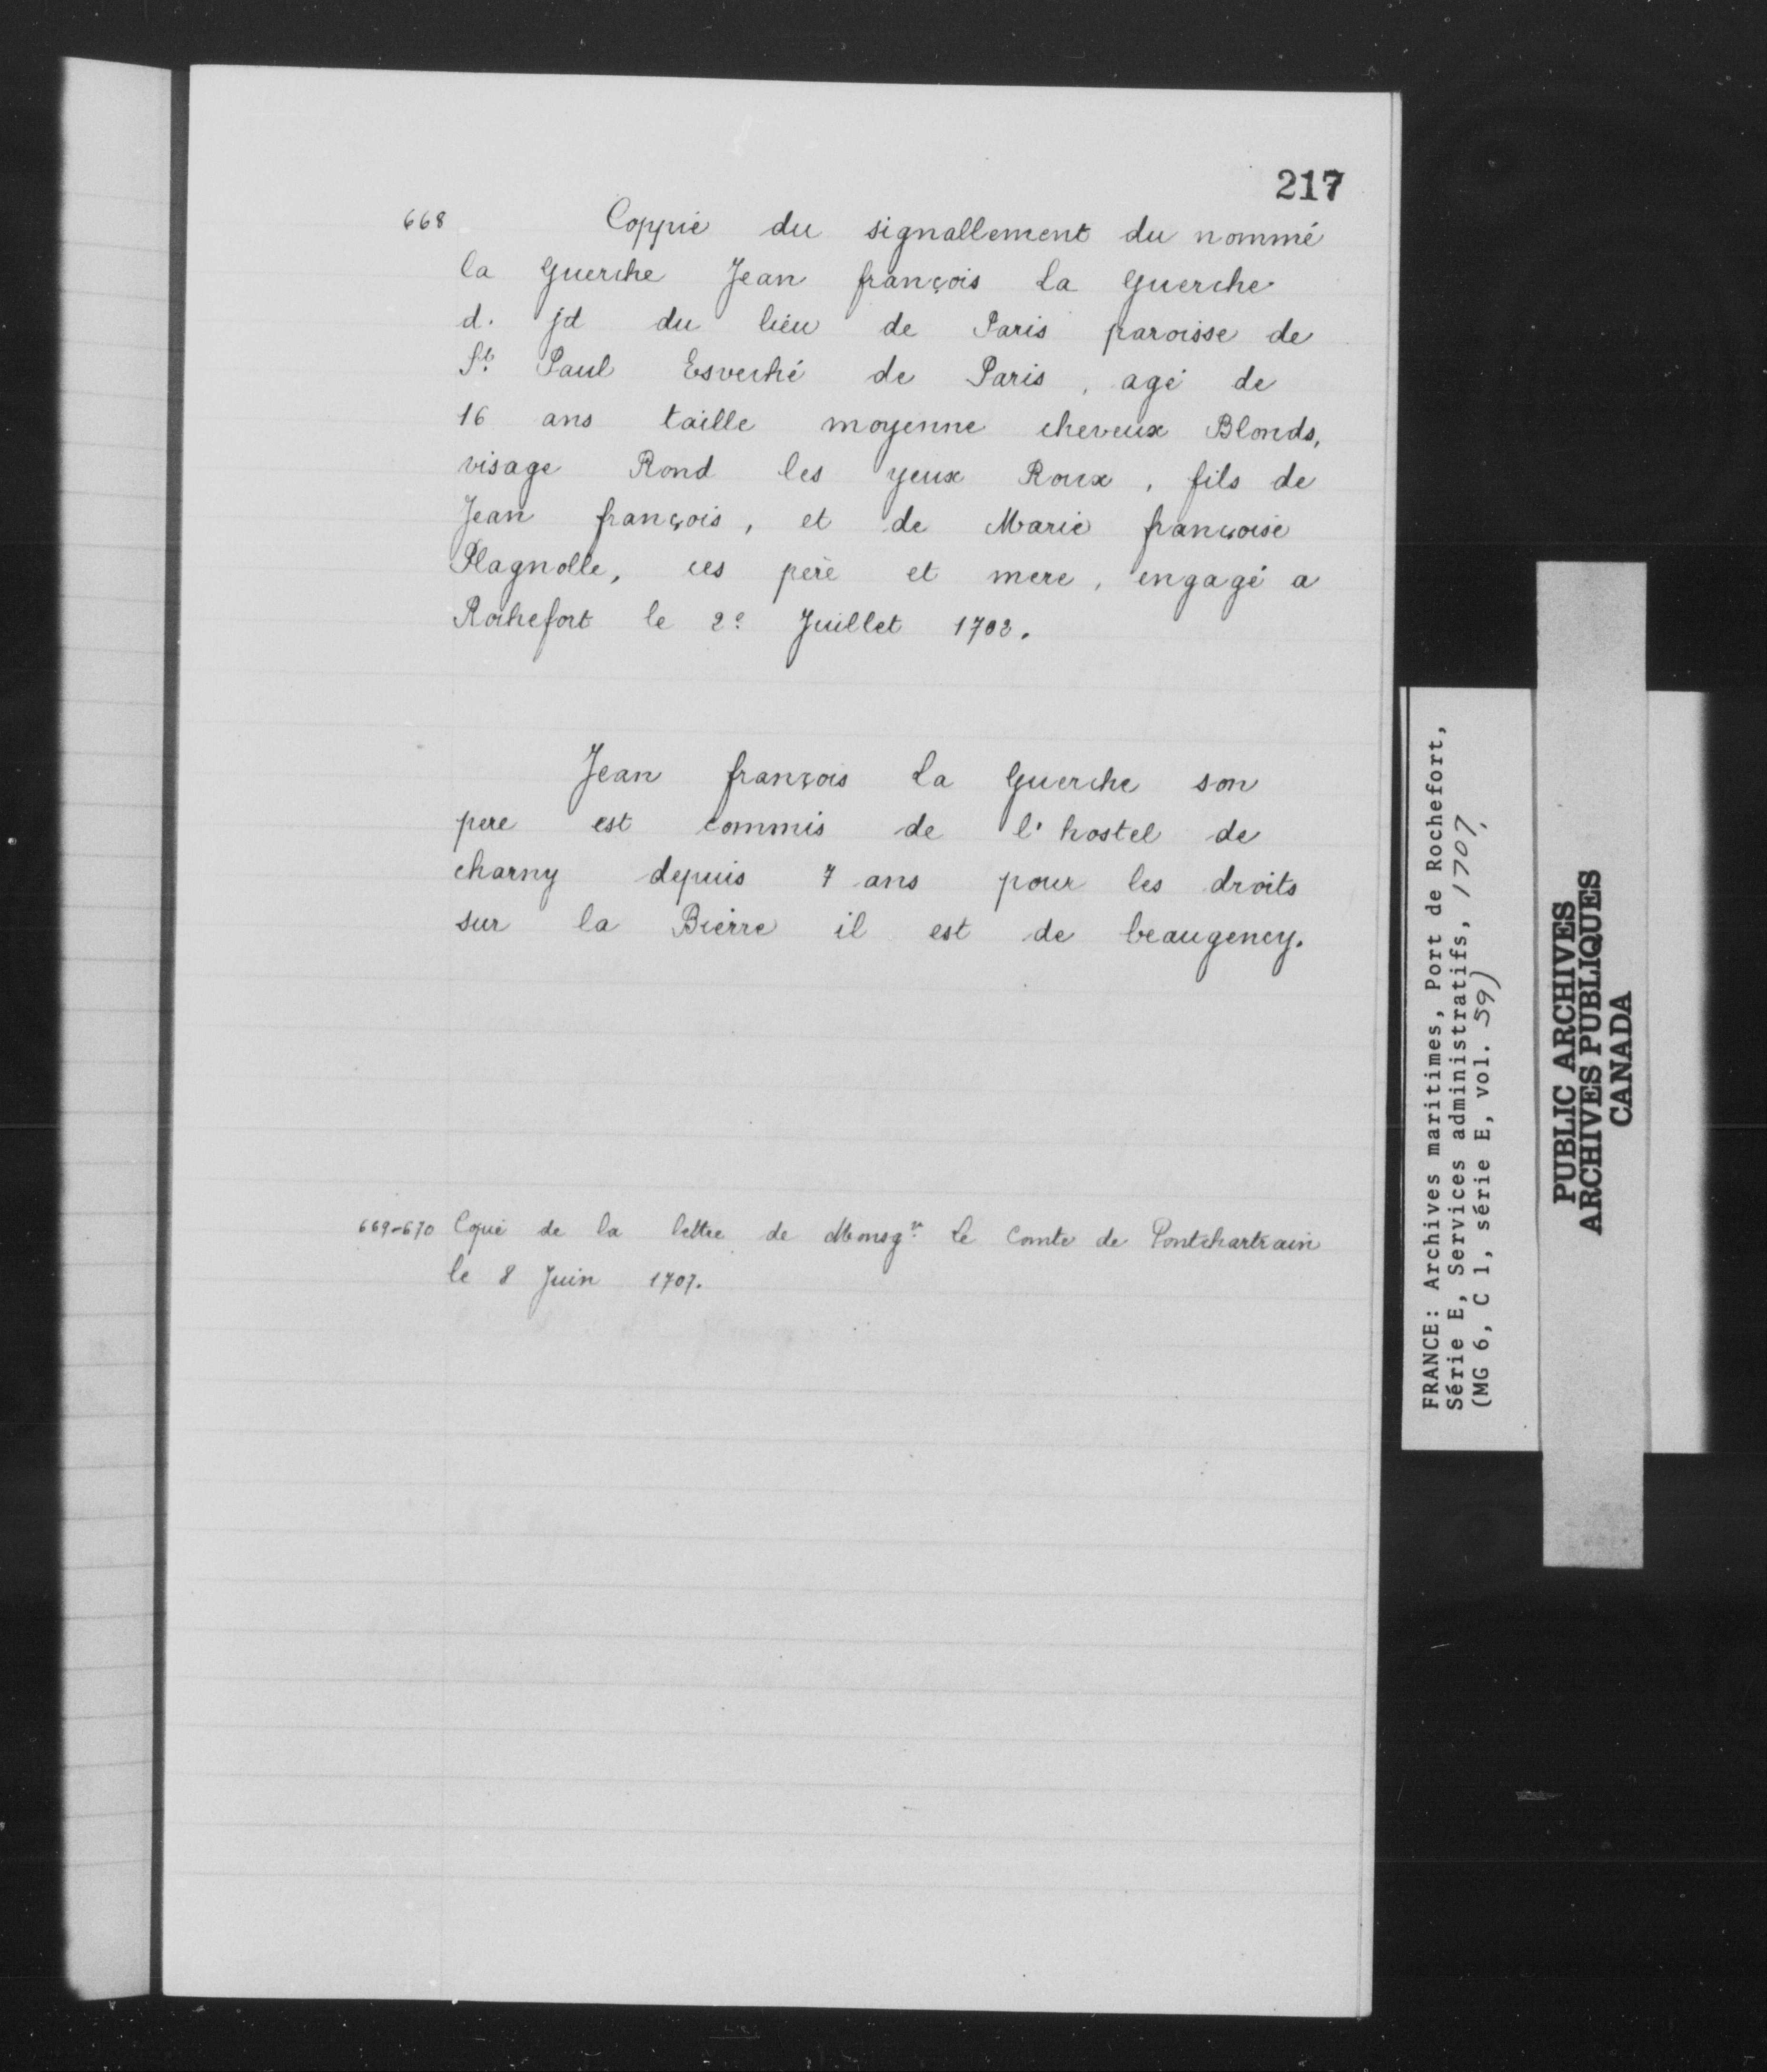 217
668 Coppie du signallement du nommé
la Guerche Jean françois La Guerche
d. jd du lieu de Paris paroisse de
St. Paul Esveché de Paris, agé de
16 ans taille moyenne cheveux Blonds,
visage Rond les yeux Roux, fils de
Jean françois, et de Marie françoise
Plagnolle, ces père et mere, engagé a
Rochefort le 2e Juillet 1702.
Jean françois La Guerche son
pere est commis de l'hostel de
charny depuis 7 ans pour les droits
sur la Bierre il est de beaugency.
669-670 Copie de la lettre de Monsgr. Le Comte de Pontchartrain
le 8 Juin 1707.
FRANCE: Archives maritimes, Port de Rochefort,
Série E, Services administratifs, 1707,
(MG 6, C 1, série E, vol. 59)
PUBLIC ARCHIVES
ARCHIVES PUBLIQUES
CANADA